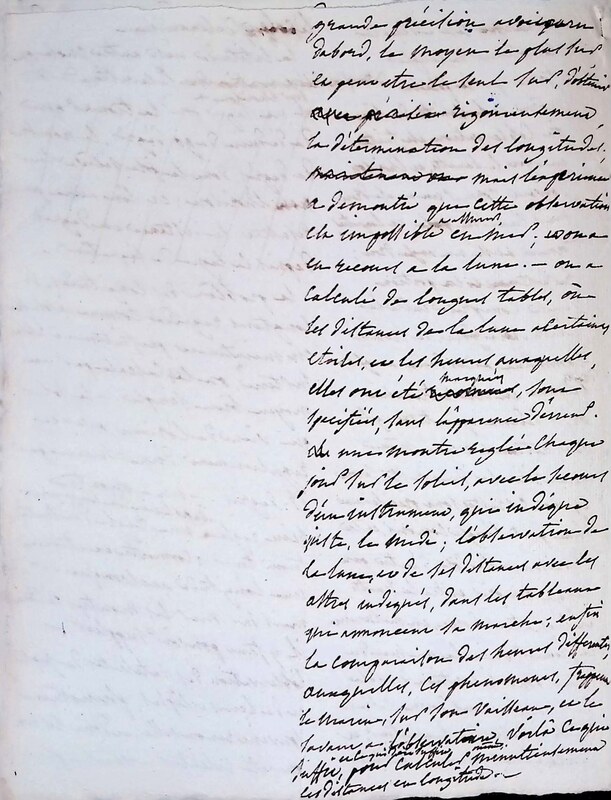 grande précision avoit paru
d'abord, le moyen le plus sur
et peut etre le seul sur, d'obtenir
rigoureusement
la détermination des longitudes.
mais l'experience
a demontré que cette observation
est impossible en mer, et on a
eu recours a la lune. – on a
calculé de longues tables, où
les distances de la lune a certaines
etoiles, et les heures auxquelles,
elles ont été marquées, sont
specifiées, sans l'apparence d'erreur.
une montre reglée chaque
jour sur le soleil, avec le secours
d'un instrument, qui indique
juste, le midi; l'observation de
la lune, et de ses distances avec les
astres indiqués, dans les tableaux
qui annoncent sa marche; enfin
la comparaison des heures differentes,
auxquelles, ces phenomenes, frappent
le marin, sur son vaisseau, et le
savant a l'observatoire, Voilà ce qui
suffit, pour calculer minutieusement
les distances en longitude. –